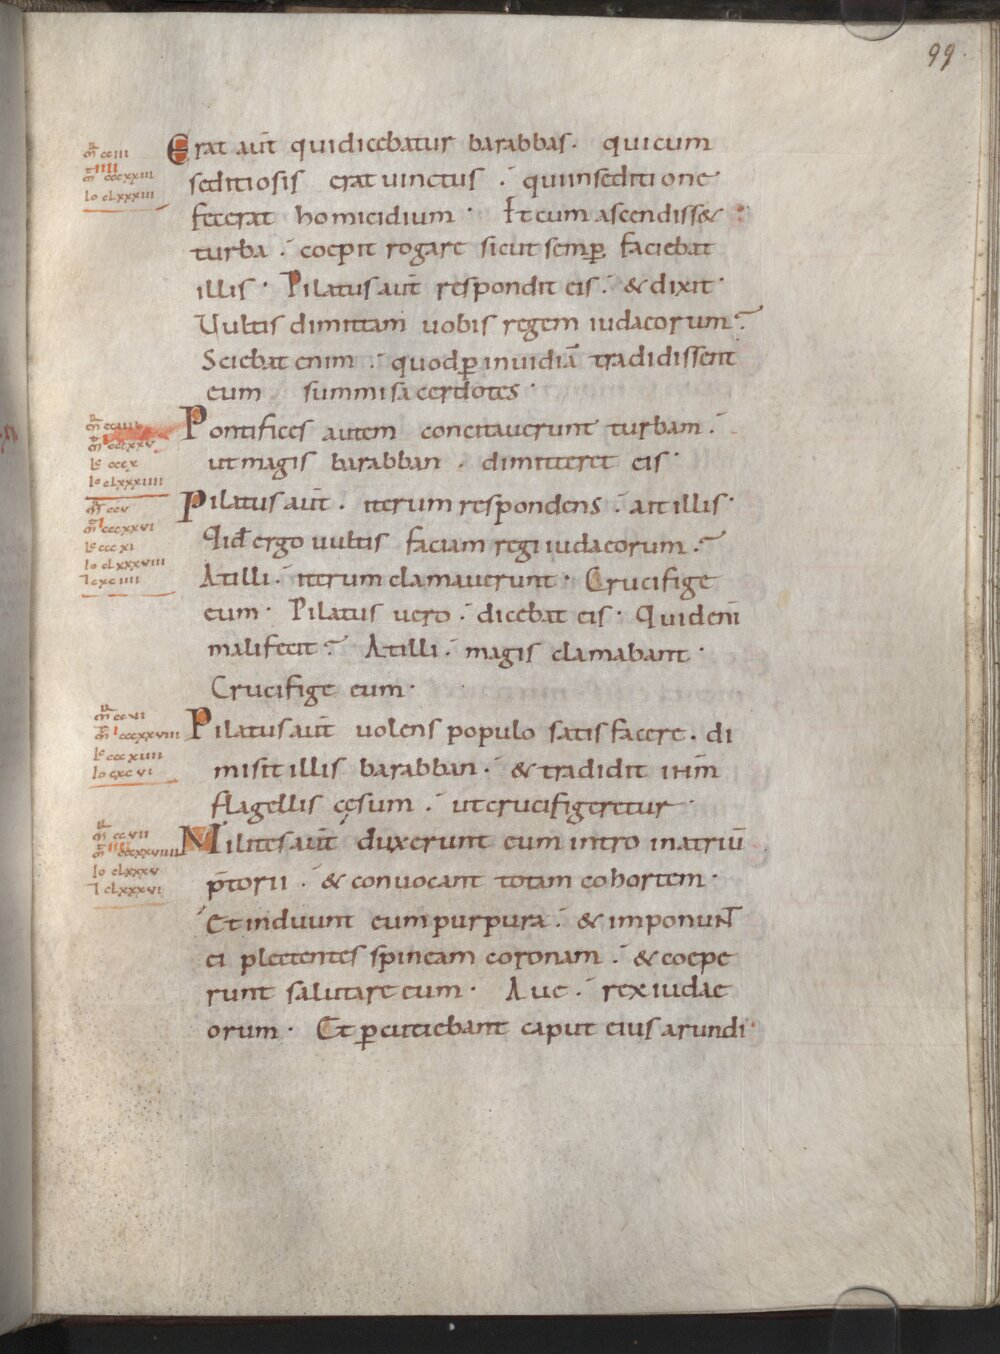 99
Erat aut̄ qui dicebatur barabbas. qui cum
seditiosis erat uinctus . qui in seditione
fecerat homicidium · Et cum ascendiss&
turba . coepit rogare sicut semp̱ faciebat
illis · Pilatus aut̄ respondit eis . & dixit ·
Uultis dimittam uobis regem iudaeorum?
Sciebat enim . quod p̱ inuidiā tradidissent
eum summi sacerdotes ·
Pontifices autem concitauerunt turbam .
ut magis barabban . dimitteret eis ·
Pilatus aut̄ . iterum respondens . ait illis ·
Qid̄ ergo uultis faciam regi iudaeorum?
At illi . iterum clamauerunt · Crucifige
eum · Pilatus uero . dicebat eis · Quid enī
mali fecit? At illi . magis clamabant ·
Crucifige eum ·
Pilatus aut̄ uolens populo satisfacere . di
misit illis barabban . & tradidit ihm̄
flagellis cęsum . ut crucifigeretur ·
Milites aut̄ duxerunt eum intro in atriū
p̄torii . & conuocant totam cohortem ·
Et induunt eum purpura . & imponunt
ei plectentes spineam coronam . & coepe
runt salutare eum · Aue . rex iudae
orum · Et p̱cutiebant caput eius arundi